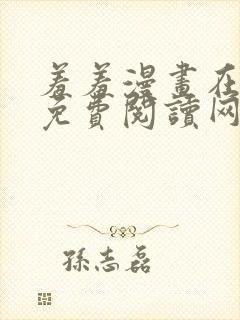 羞羞漫畫在
免費閱讀网
孫志磊